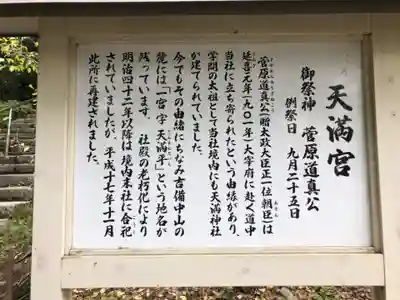 天満宮
御祭神　菅原道真公
例祭日　九月二十五日
菅原道真公（贈太政大臣正一位朝臣）は
延喜元年（九〇一年）大宰府に赴く道中
当社に立ち寄られたという由緒があり、
学問の太祖として当社境内にも天満神社
が建てられていました。
今でもその由緒にちなみ吉備中山の
麓には「一宮 字 天満平」という地名が
残っています。　社殿の老朽化により
明治四十二年以降は境内末社に合祀
されていましたが、平成十七年十一月
此所に再建されました。